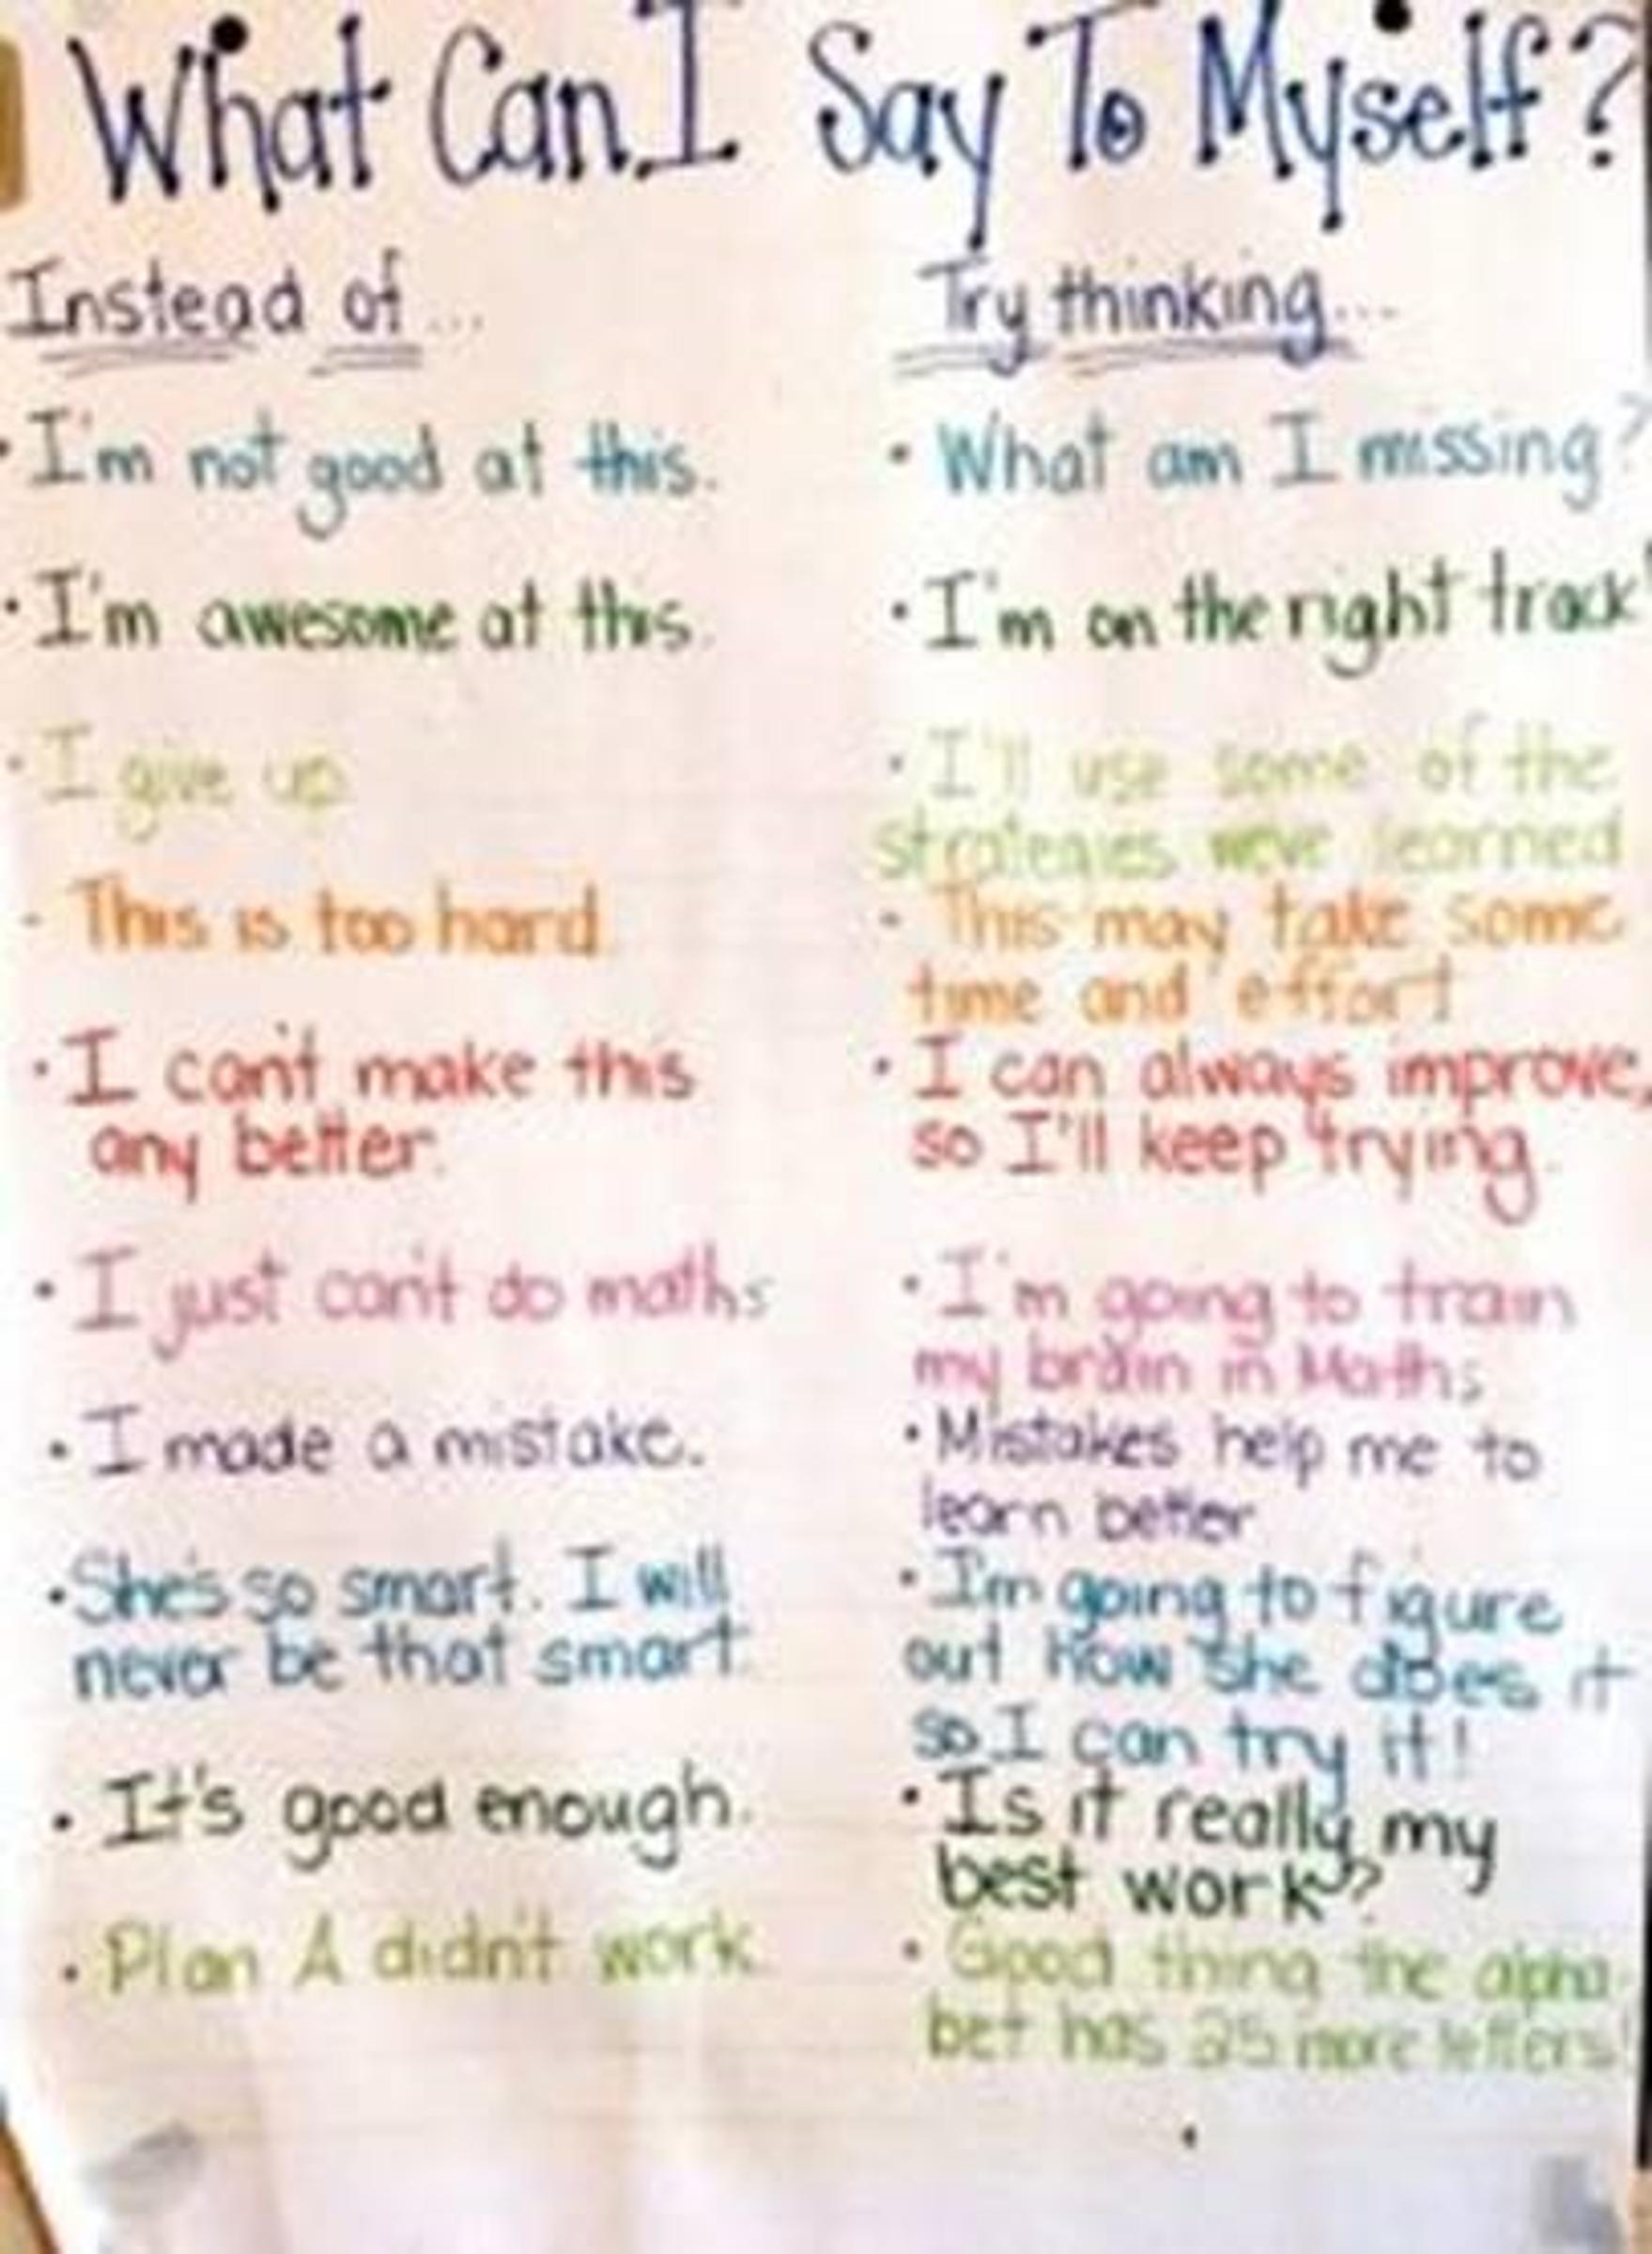 What Can I Say To Myself?
Instead of...
Try thinking...
• I'm not good at this.
• What am I missing?
• I'm awesome at this.
• I'm on the right track!
• I give up
• I'll use some of the
strategies we've learned
- This is too hard.
• This may take some
time and effort
• I can't make this
any better.
• I can always improve,
so I'll keep trying.
• I just can't do maths
• I'm going to train
my brain in Maths
• I made a mistake.
• Mistakes help me to
learn better
• She's so smart. I will
never be that smart.
• I'm going to figure
out how she does it
so I can try it!
• It's good enough.
• Is it really my
best work?
• Plan A didn't work
• Good thing the alpha
bet has 25 more letters!